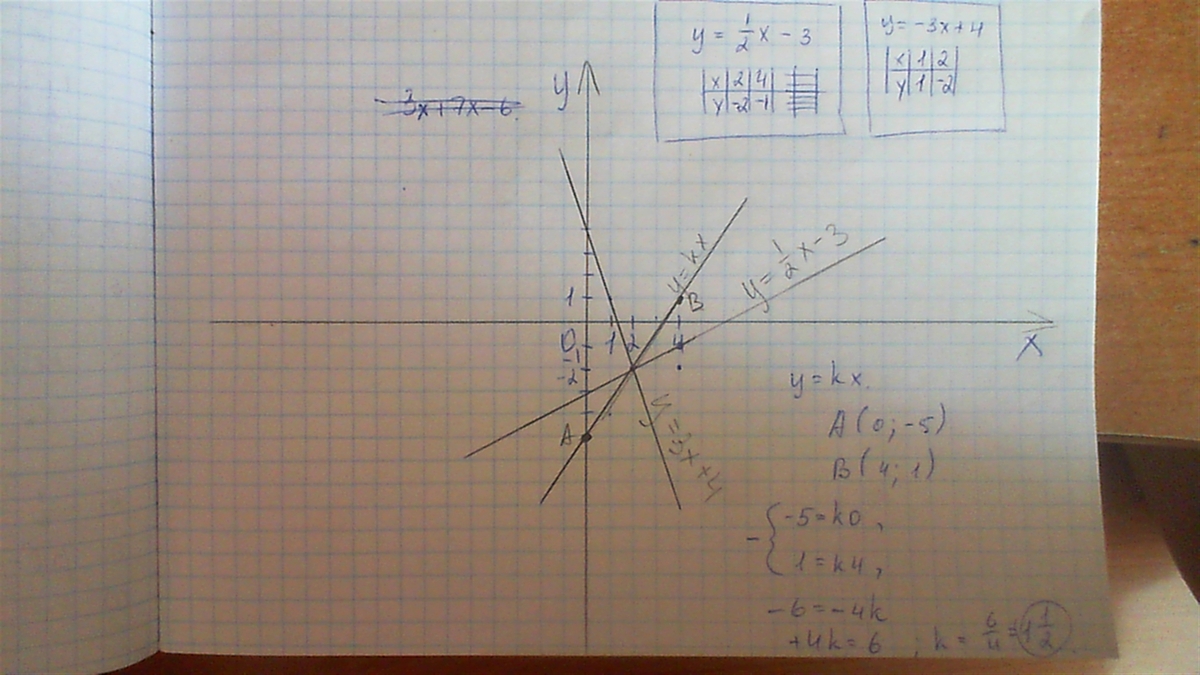 y = 1/2 x - 3
x 2 4
y -2 -1
y = -3x+4
x 1 2
y 1 -2
3x+7x-6
y
y=kx
y = 1/2 x-3
1
B
0
1 2 4
x
-1
-2
A
y=3x+4
y = kx.
A(0; -5)
B(4; 1)
- { -5=k0,
1=k4,
-6=-4k
+4k=6 ; k = 6/4 = 1 1/2.